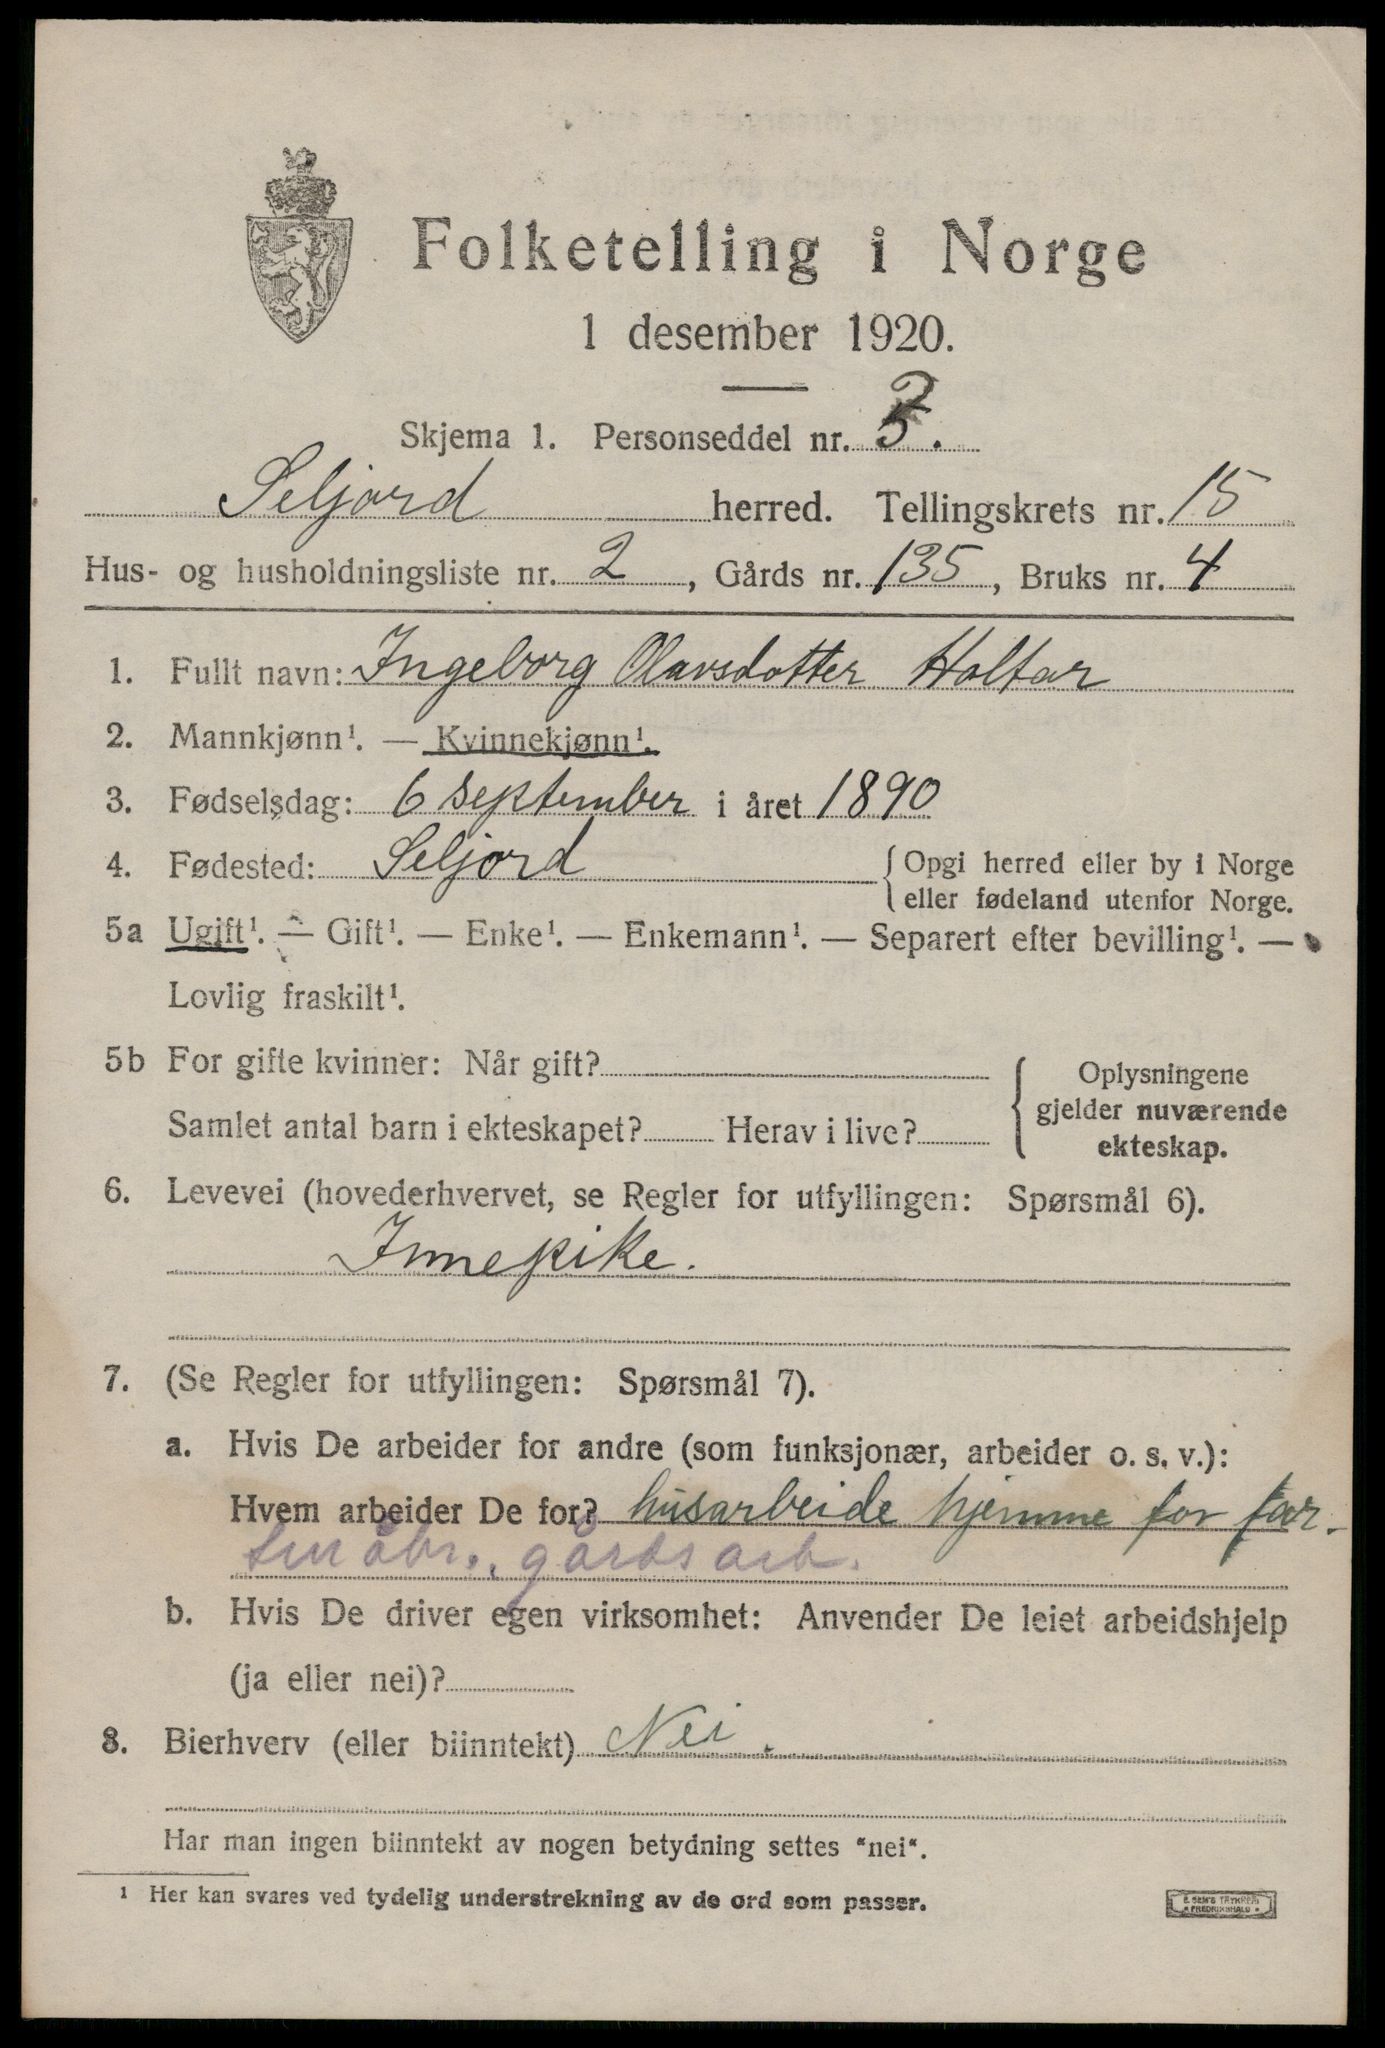 Folketelling i Norge
1 desember 1920.
Skjema 1. Personseddel nr. 3.
Seljord herred. Tellingskrets nr. 15
Hus- og husholdningsliste nr. 2, Gårds nr. 135, Bruks nr. 4
1. Fullt navn: Ingeborg Olavsdotter Holtar
2. Mannkjønn¹. — Kvinnekjønn¹.
3. Fødselsdag: 6 september i året 1890
4. Fødested: Seljord { Opgi herred eller by i Norge
eller fødeland utenfor Norge.
5a Ugift¹. — Gift¹. — Enke¹. — Enkemann¹. — Separert efter bevilling¹. —
Lovlig fraskilt¹.
5b For gifte kvinner: Når gift?
Samlet antal barn i ekteskapet? Herav i live?
{ Oplysningene
gjelder nuværende
ekteskap.
6. Levevei (hovederhvervet, se Regler for utfyllingen: Spørsmål 6).
Innepike.
7. (Se Regler for utfyllingen: Spørsmål 7).
a. Hvis De arbeider for andre (som funksjonær, arbeider o. s. v.):
Hvem arbeider De for? husarbeide hjemme for far.
småbr., gårdsarb.
b. Hvis De driver egen virksomhet: Anvender De leiet arbeidshjelp
(ja eller nei)?
8. Bierhverv (eller biinntekt) Nei.
Har man ingen biinntekt av nogen betydning settes "nei".
¹ Her kan svares ved tydelig understrekning av de ord som passer.